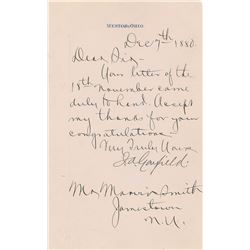 MENTOR, OHIO
Dec 7th 1880.
Dear Sir -
Your letter of the
18th November came
duly to hand. Accept
my thanks for your
congratulations -
Very Truly Yours
J.A. Garfield.
Mr Marvin Smith
Jamestown
N.Y.